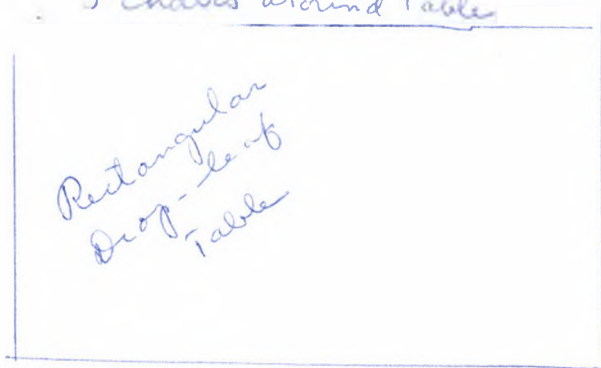 chairs around Table
Rectangular
Drop-leaf
Table